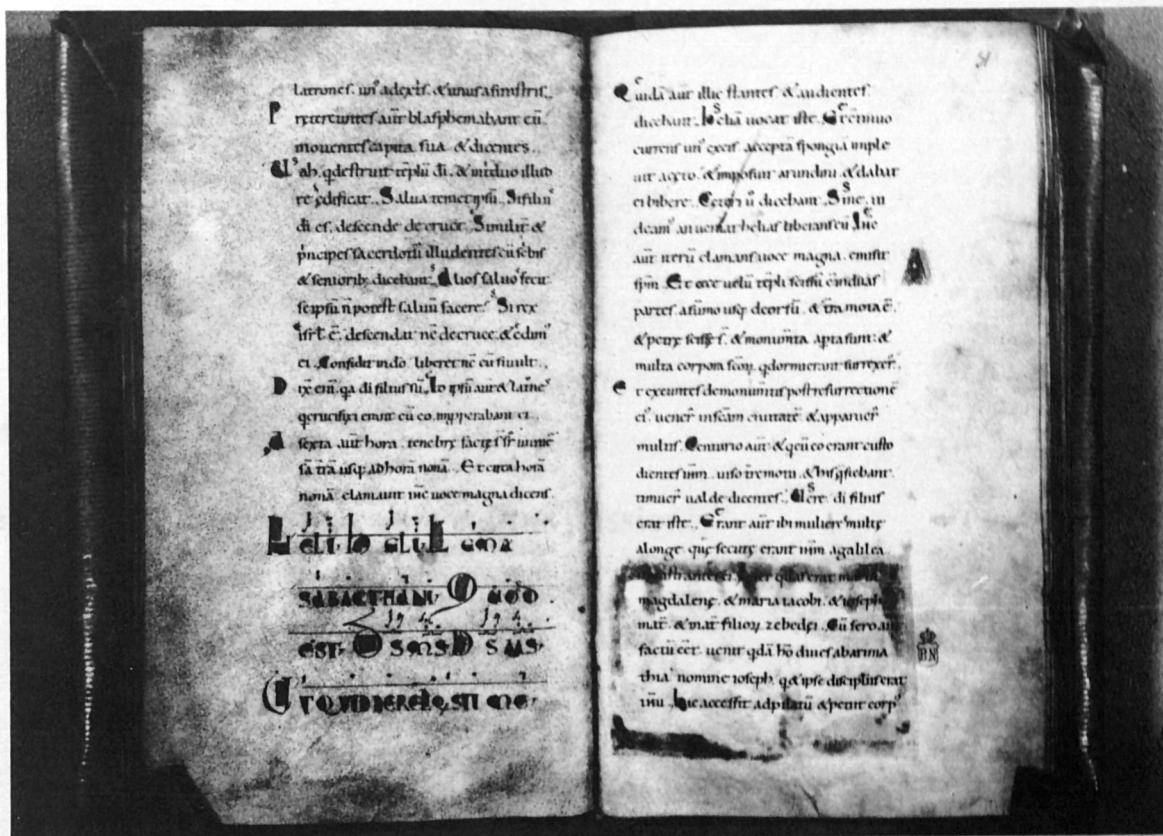 latrones. un᷒ adext᷒s. & unus asinistris.
P retereuntes aut̄ blasphemabant eū
mouentes capita sua & dicentes.
Uah. qͥ destruit tēplū dī. & intriduo illud
reędificat. Salua temetipsū. Si filiᷤ
dī es. descende de cruce. Similit̄ &
pͥncipes sacerdotū illudentes cū scͥbis
& seniorib; dicebant. Alios saluos fecit
seipsū n̄ potest saluū facere. Si rex
isrł ē. descendat nc̄ de cruce. & cͥdimᷤ
ei. Confidit indō. liberet nc̄ eū si uult.
D ix̄ enī. qͥa dī filius sū. Id ipsū aut̄ & latͦnes
qͥ crucifixi erant cū eo. inpperabant ei.
A sexta aut̄ hora. tenebrę factę sͭ sr̄ uniuēr
sā tr̄ā usq; ad horā nonā. Et circa horā
nonā clamauit ih̄c uoce magna dicens.
HELI HELI LEMA
SABACTHANI HOC
EST DS MS DS MS
UT QUID DERELIQSTI ME
51
Quidā aut̄ illic stantes & audientes
dicebant. heliā uocat iste. Et cͦtinuo
currens unᷤ exeis acceptā spongiā imple
uit aceto. & imposuit arundini & dabat
ei bibere. Ceteri ū dicebant. Sine. ui
deamᷤ an ueniat helias liberans eū. Ih̄c
aut̄ iterū clamans uoce magna. emisit
sp̄m. Et ecce uelū tēpli scissū ē induas
partes. asūmo usq; deorsū. & tr̄a mota ē.
A
& petrę scissę s̄. & monum̄ta apta sunt. &
multa corpora scōꝝ. qͥ dormierant surrexeͬ.
E t exeuntes demonumentis post resurrectionē
eiᷤ. ueneͬ inscām ciuitatē & apparueͬ
multis. Centurio aut̄ & qͥ cū eo erant custo
dientes ih̄m. uiso tr̄emotu. & his qͥ fiebant.
timueͬ ualde dicentes. Uere dī filius
erat iste. Erant aut̄ ibi mulieres multę
alonge. quę secutę erant ih̄m agalilea
ministrantes ei. Inter quas erat maria
magdalenę. & maria iacobi. & ioseph
mat̄. & mat̄ filioꝝ zebedęi. Cū sero aut̄
factū eēt. uenit qͥdā hō diues abarima
thia nomine ioseph. qͥ & ipse discipłus erat
ih̄u. hic accessit ad pilatū & petiit corpᷤ
BN